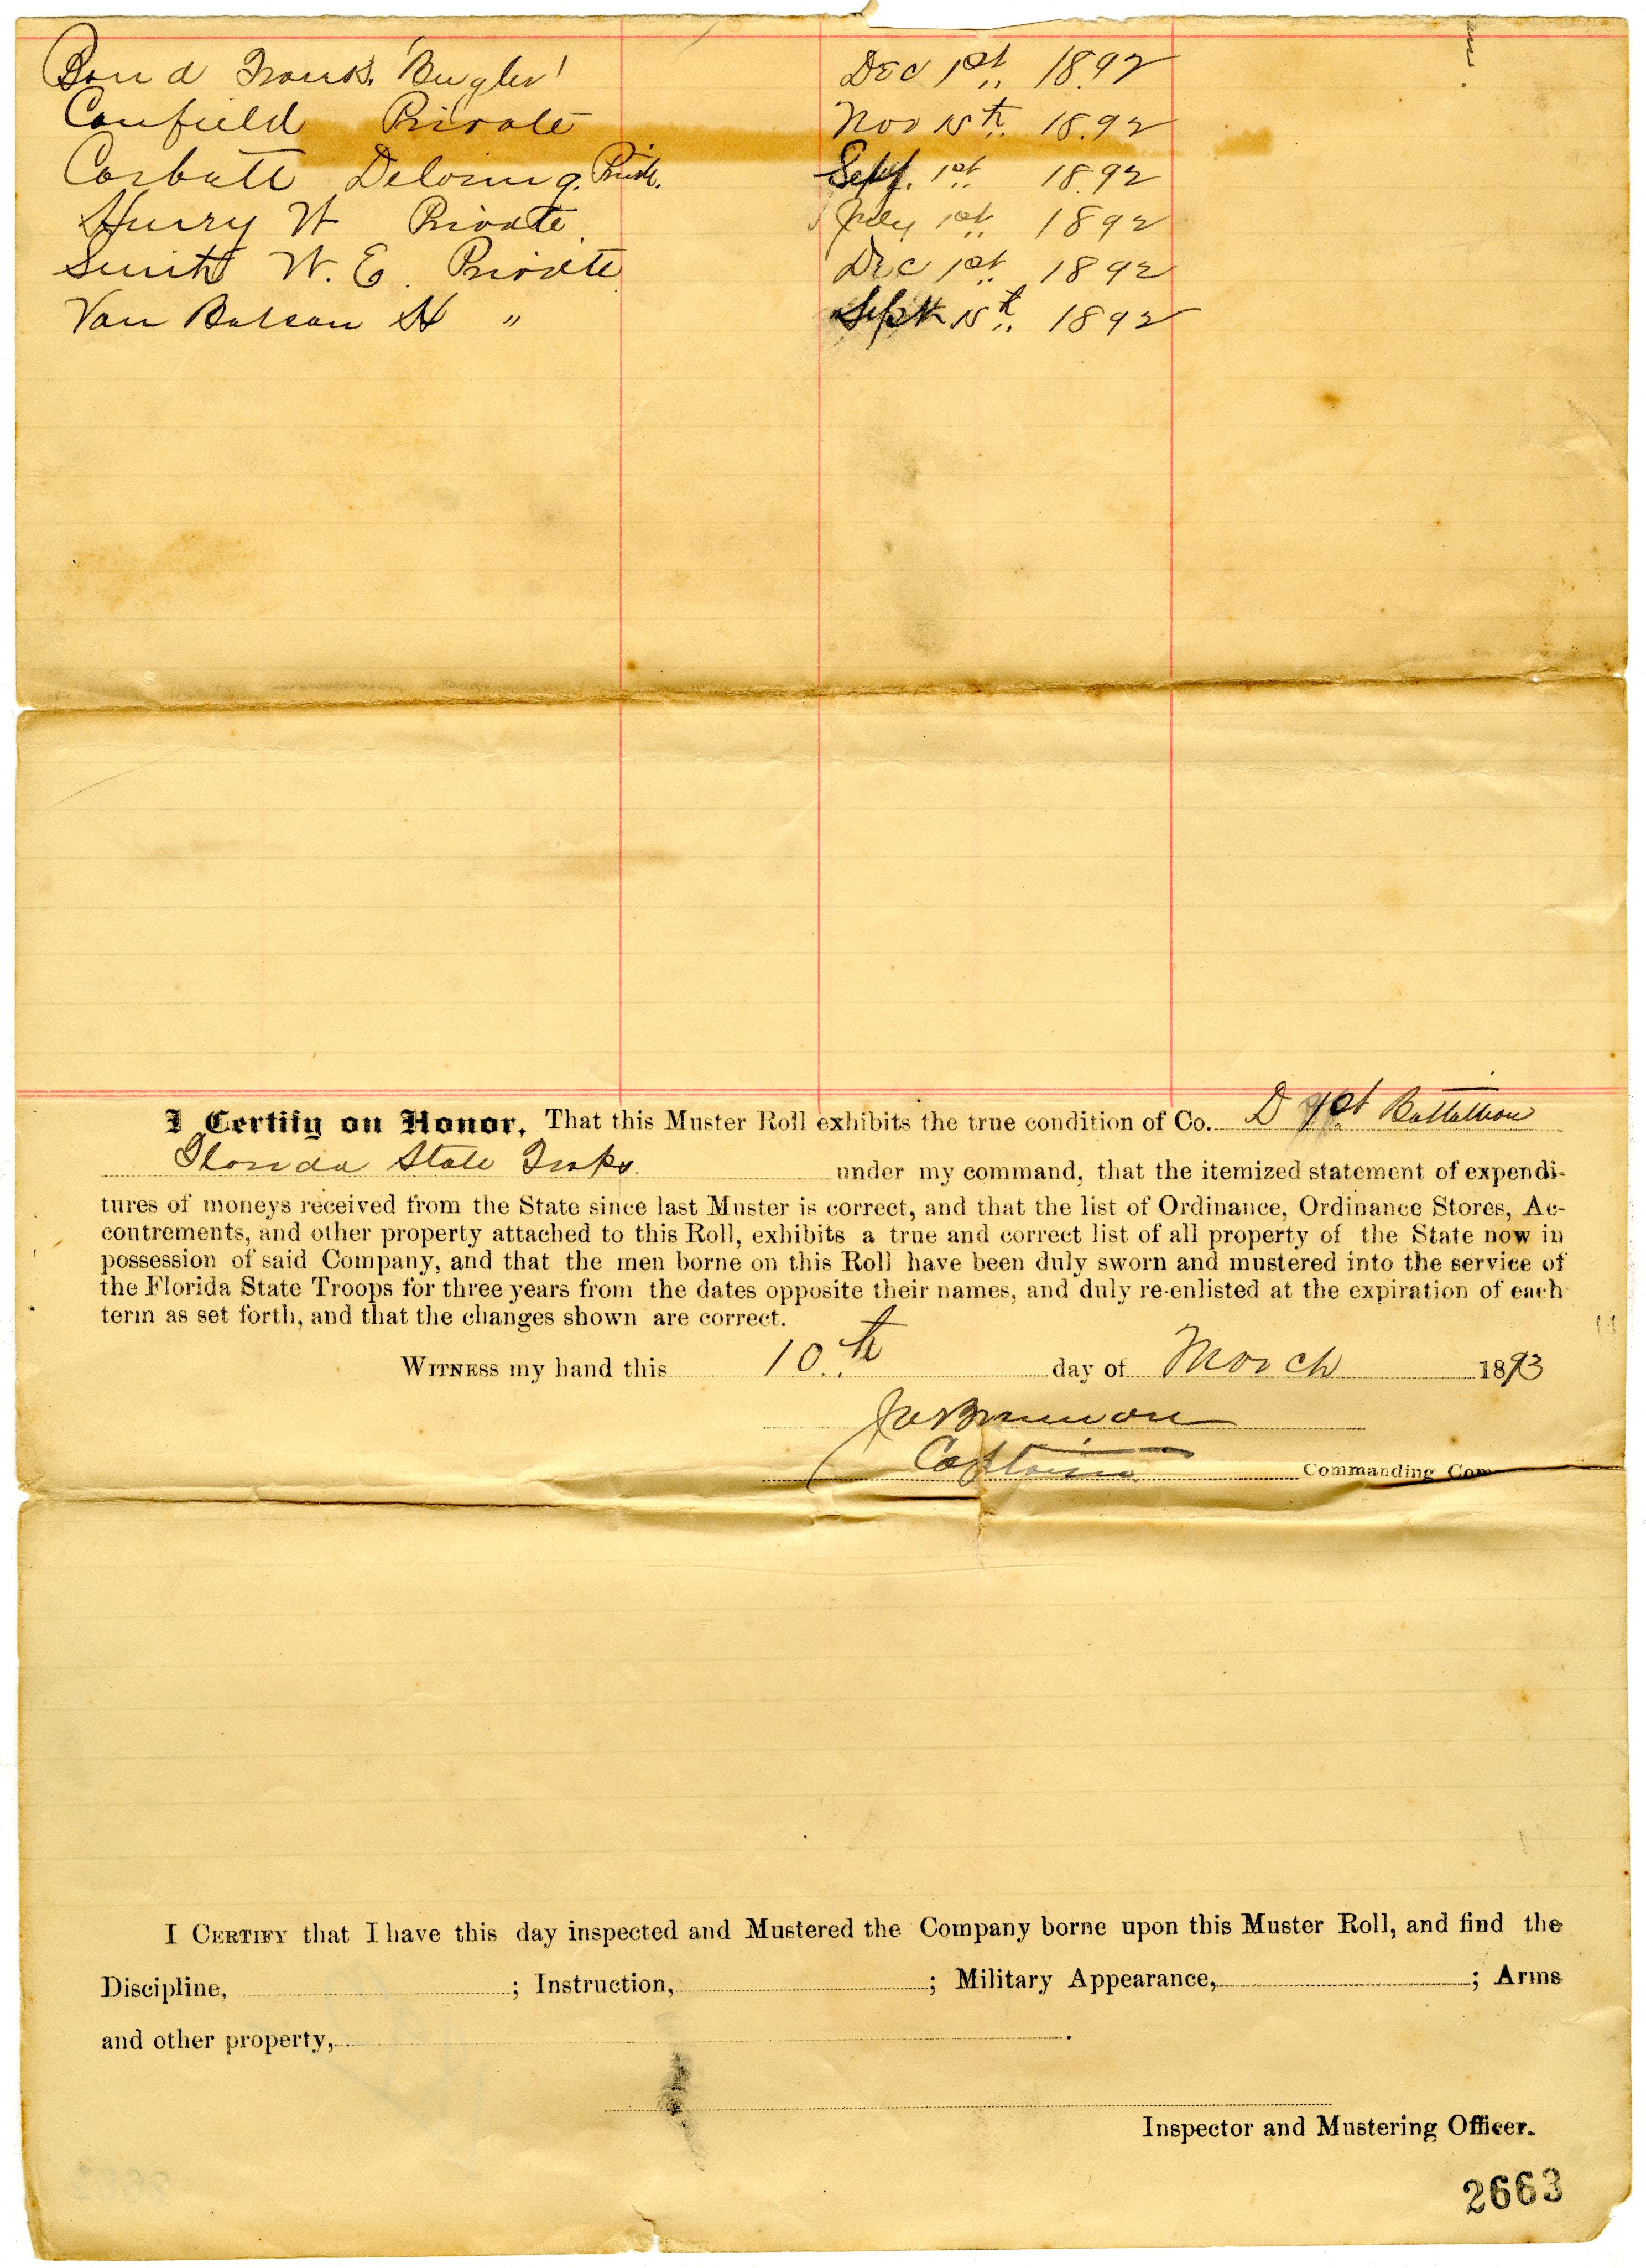 Bond Frank "Bugler" Dec 1st 1892
Canfield Private Nov 15th 1892
Corbett Private Sept. 1st 1892
Hurry W Private July 1st 1892
Smith W. E. Private Dec 1st 1892
Van H " Sept 15th 1892
I Certify on Honor, That this Muster Roll exhibits the true condition of Co. D 1st Battalion
Florida State Troops. under my command, that the itemized statement of expendi-
tures of moneys received from the State since last Muster is correct, and that the list of Ordinance, Ordinance Stores, Ac-
coutrements, and other property attached to this Roll, exhibits a true and correct list of all property of the State now in
possession of said Company, and that the men borne on this Roll have been duly sworn and mustered into the service of
the Florida State Troops for three years from the dates opposite their names, and duly re-enlisted at the expiration of each
term as set forth, and that the changes shown are correct.
WITNESS my hand this 10th day of March 1893
Captain Commanding Com
I CERTIFY that I have this day inspected and Mustered the Company borne upon this Muster Roll, and find the
Discipline, ; Instruction, ; Military Appearance, ; Arms
and other property, .
Inspector and Mustering Officer.
2663